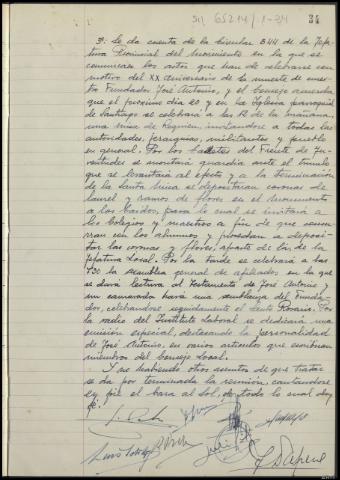 Sig 6521411-34
34
3º Se da cuenta de la circular B 44 de la Jefa-
tura Provincial del Movimiento en la que se
comunican los actos que han de celebrarse con
motivo del XX aniversario de la muerte de nues-
tro Fundador José Antonio, y el Consejo acuerda
que el próximo día 20 y en la Iglesia parroquial
de Santiago se celebrará a las 12 de la mañana,
una misa de Requiem, invitándose a todas las
autoridades, jerarquías, militantes y pueblo
en general. Por los Cadetes del Frente de Ju-
ventudes se montará guardia ante el túmulo
que se levantará al efecto y a la terminación
de la Santa Misa se depositarán coronas de
laurel y ramos de flores en el Monumento
a los Caídos, para lo cual se invitará a
los Colegios y Maestros a fin de que concu-
rran con los alumnos y procedan a deposi-
tar las coronas y flores, aparte de la de la
Jefatura Local. Por la tarde se celebrará a las
7,30 la asamblea general de afiliados, en la que
se dará lectura al Testamento de José Antonio y
un camarada hará una semblanza del Funda-
dor, celebrándose seguidamente el Santo Rosario. Por
la radio del Instituto Laboral se dedicará una
emisión especial, destacando la personalidad
de José Antonio, en varios artículos que escriban
miembros del Consejo Local.
Y no habiendo otros asuntos de que tratar
se da por terminada la reunión, cantándose
en pie el Cara al Sol, de todo lo cual doy
fé.
Luis
Julio